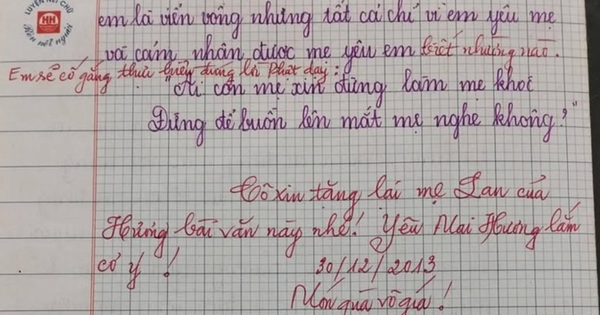 LUYỆN NÉT CHỮ
HH
RÈN NẾT NGƯỜI
em là viển vông nhưng tất cả chỉ vì em yêu mẹ
và cảm nhận được mẹ yêu em biết nhường nào.
Em sẽ cố gắng thực hiện đúng lời Phật dạy:
"Ai còn mẹ xin đừng làm mẹ khóc
Đừng để buồn lên mắt mẹ nghe không?"
Cô xin tặng lại mẹ Lan của
Hương bài văn này nhé! Yêu Mai Hương lắm
cơ ý!
30/12/2013
Món quà vô giá!